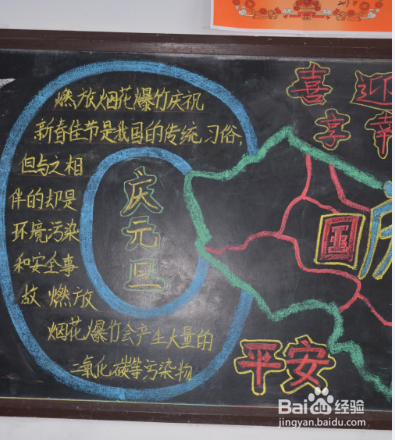 燃放烟花爆竹庆祝
新春佳节是我国的传统习俗,
但与之相
伴的却是
环境污染
和安全事
故 燃放
烟花爆竹会产生大量的
二氧化碳等污染物
庆元旦
喜迎
享
国庆
平安
Baidu经验
jingyan.baidu.com